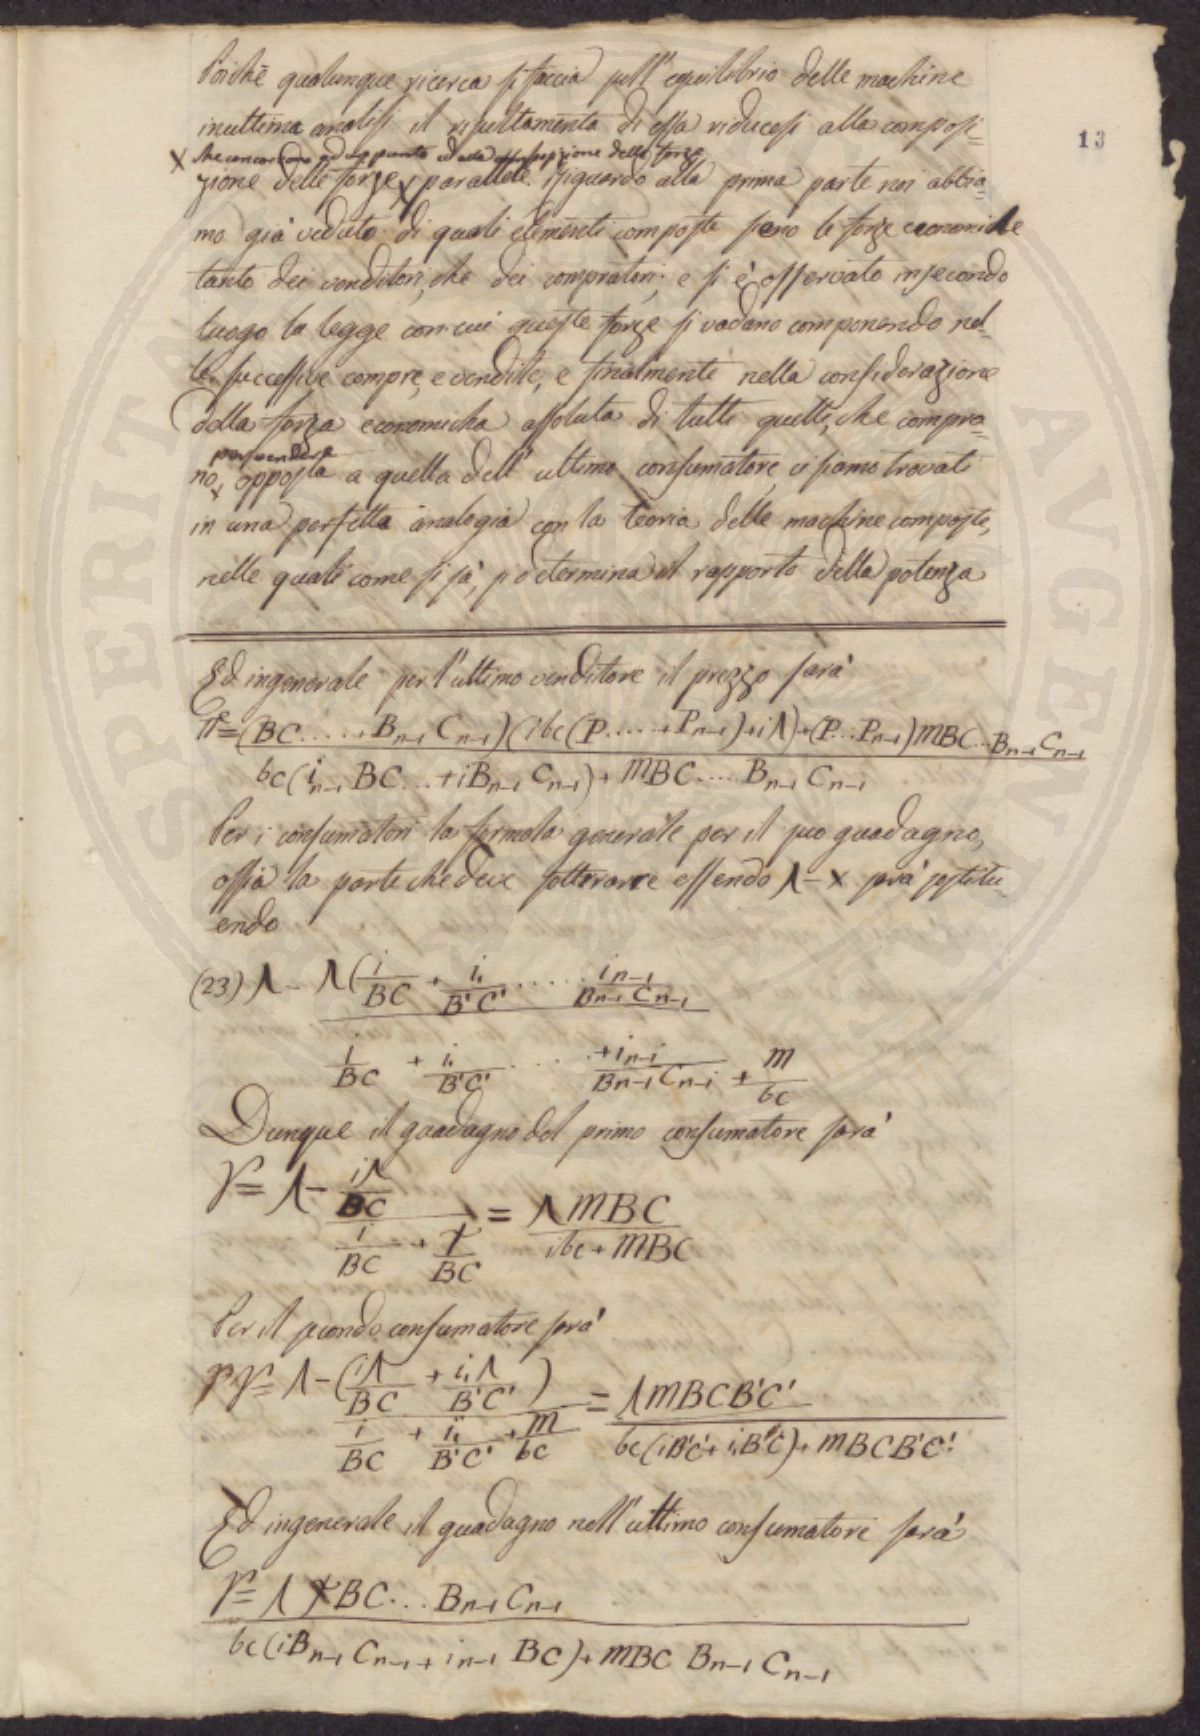 Poichè qualunque ricerca si faccia sull' equilibrio delle machine
inultima analisi il risultamento di essa riducesi alla composi-
13
x che concorrono ad un punto ed alla composizione delle forze
zione delle forze x parallele. Riguardo alla prima parte noi abbia-
mo già veduto di quali elementi composte sieno le forze economiche
tanto dei venditori, che dei compratori; e si è osservato insecondo
luogo la legge concui queste forze si vadano componendo nel-
le successive compre, e vendite, e finalmente nella considerazione
della forza economicha assoluta di tutti quelli, che compra-
per vendere
no x opposta a quella dell' ultimo consumatore ci siamo trovati
in una perfetta analogia con la teoria delle machine composte,
nelle quali come si sà, si determina il rapporto della potenza
Ed ingenerale per l'ultimo venditore il prezzo sarà
π = (BC.....+B n-1 C n-1)(ibc(P.....+P n-1)+iΛ)+(P...P n-1)mBC...B n-1 C n-1
bc(i n-1 BC...+iB n-1 C n-1)+mBC.... B n-1 C n-1
Per i consumatori la formola generale per il suo guadagno,
ossia la parte che deve sotterarre essendo Λ-x sarà sostitu-
endo
(23) Λ - Λ(i/BC + i,/B'C' ...... i n-1/B n-1 C n-1
i/BC + i,/B'C' .... +i n-1/B n-1 C n-1 + m/bc
Dunque il guadagno del primo consumatore sarà
γ = Λ - iΛ/BC = ΛmBC
i/BC + 1/BC ibc+mBC
Per il secondo consumatore sarà
γ = Λ-(iΛ/BC + i,Λ/B'C') = ΛmBCB'C'
i/BC + i,/B'C' + m/bc bc(iB'C'+i,BC)+mBCB'C'.
Ed ingenerale il guadagno nell'ultimo consumatore sarà
γ = Λ BC... B n-1 C n-1
bc(iB n-1 C n-1 + i n-1 BC)+mBC B n-1 C n-1